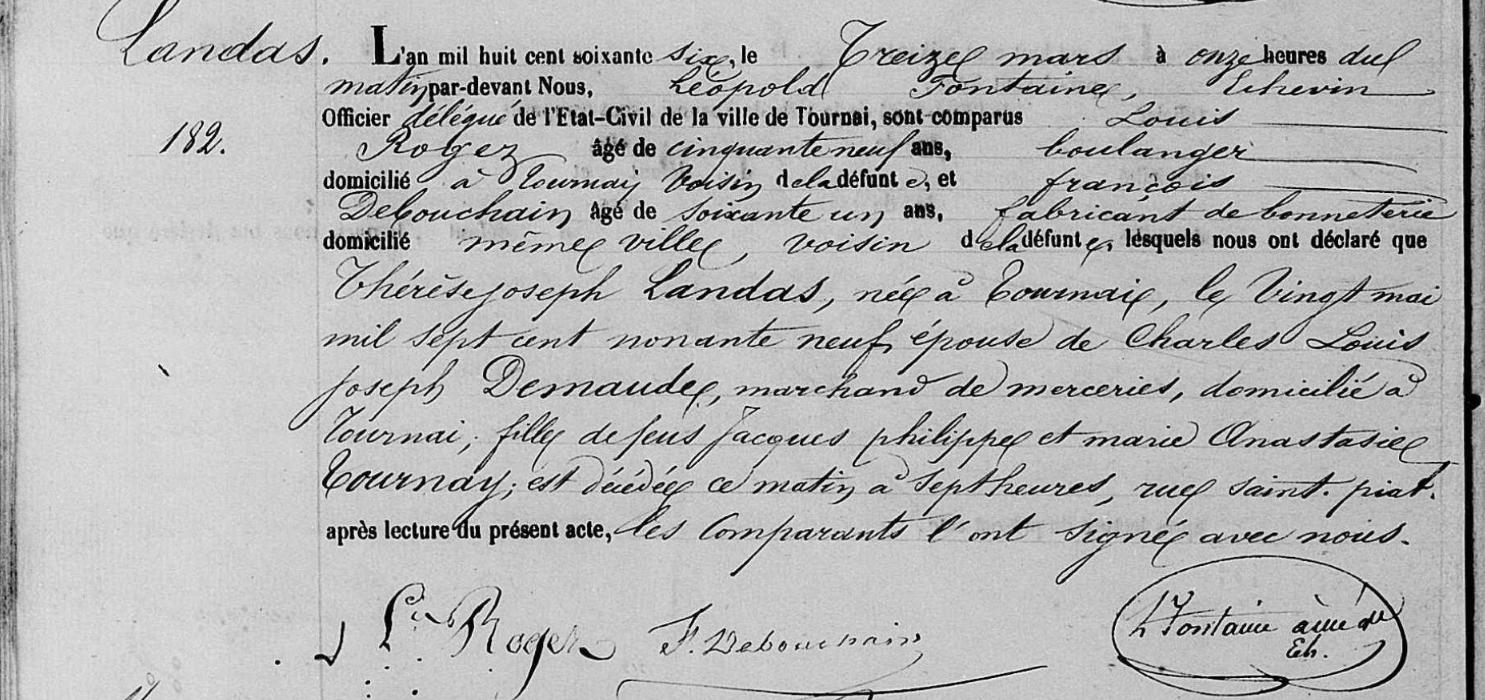 Landas.
L'an mil huit cent soixante six, le Treize mars à onze heures du
matin par-devant Nous, Léopold Fontaine, Echevin
Officier délégué de l'Etat-Civil de la ville de Tournai, sont comparus Louis
182.
Rogez âgé de cinquante neuf ans, boulanger
domicilié à Tournai, Voisin de la défunte, et françois
Debouchain âgé de soixante un ans, fabricant de bonneterie
domicilié même ville, voisin de la défunte, lesquels nous ont déclaré que
Thérèse joseph Landas, née à Tournai, le Vingt mai
mil sept cent nonante neuf, épouse de Charles Louis
joseph Demaude, marchand de merceries, domicilié à
Tournai, fille de feus Jacques philippe et marie Anastasie
Tournay; est décédée ce matin à Sept heures, rue saint. piat.
après lecture du présent acte, les Comparants l'ont signé avec nous.
Ls Rogez F. Debouchain L Fontaine
Eh.